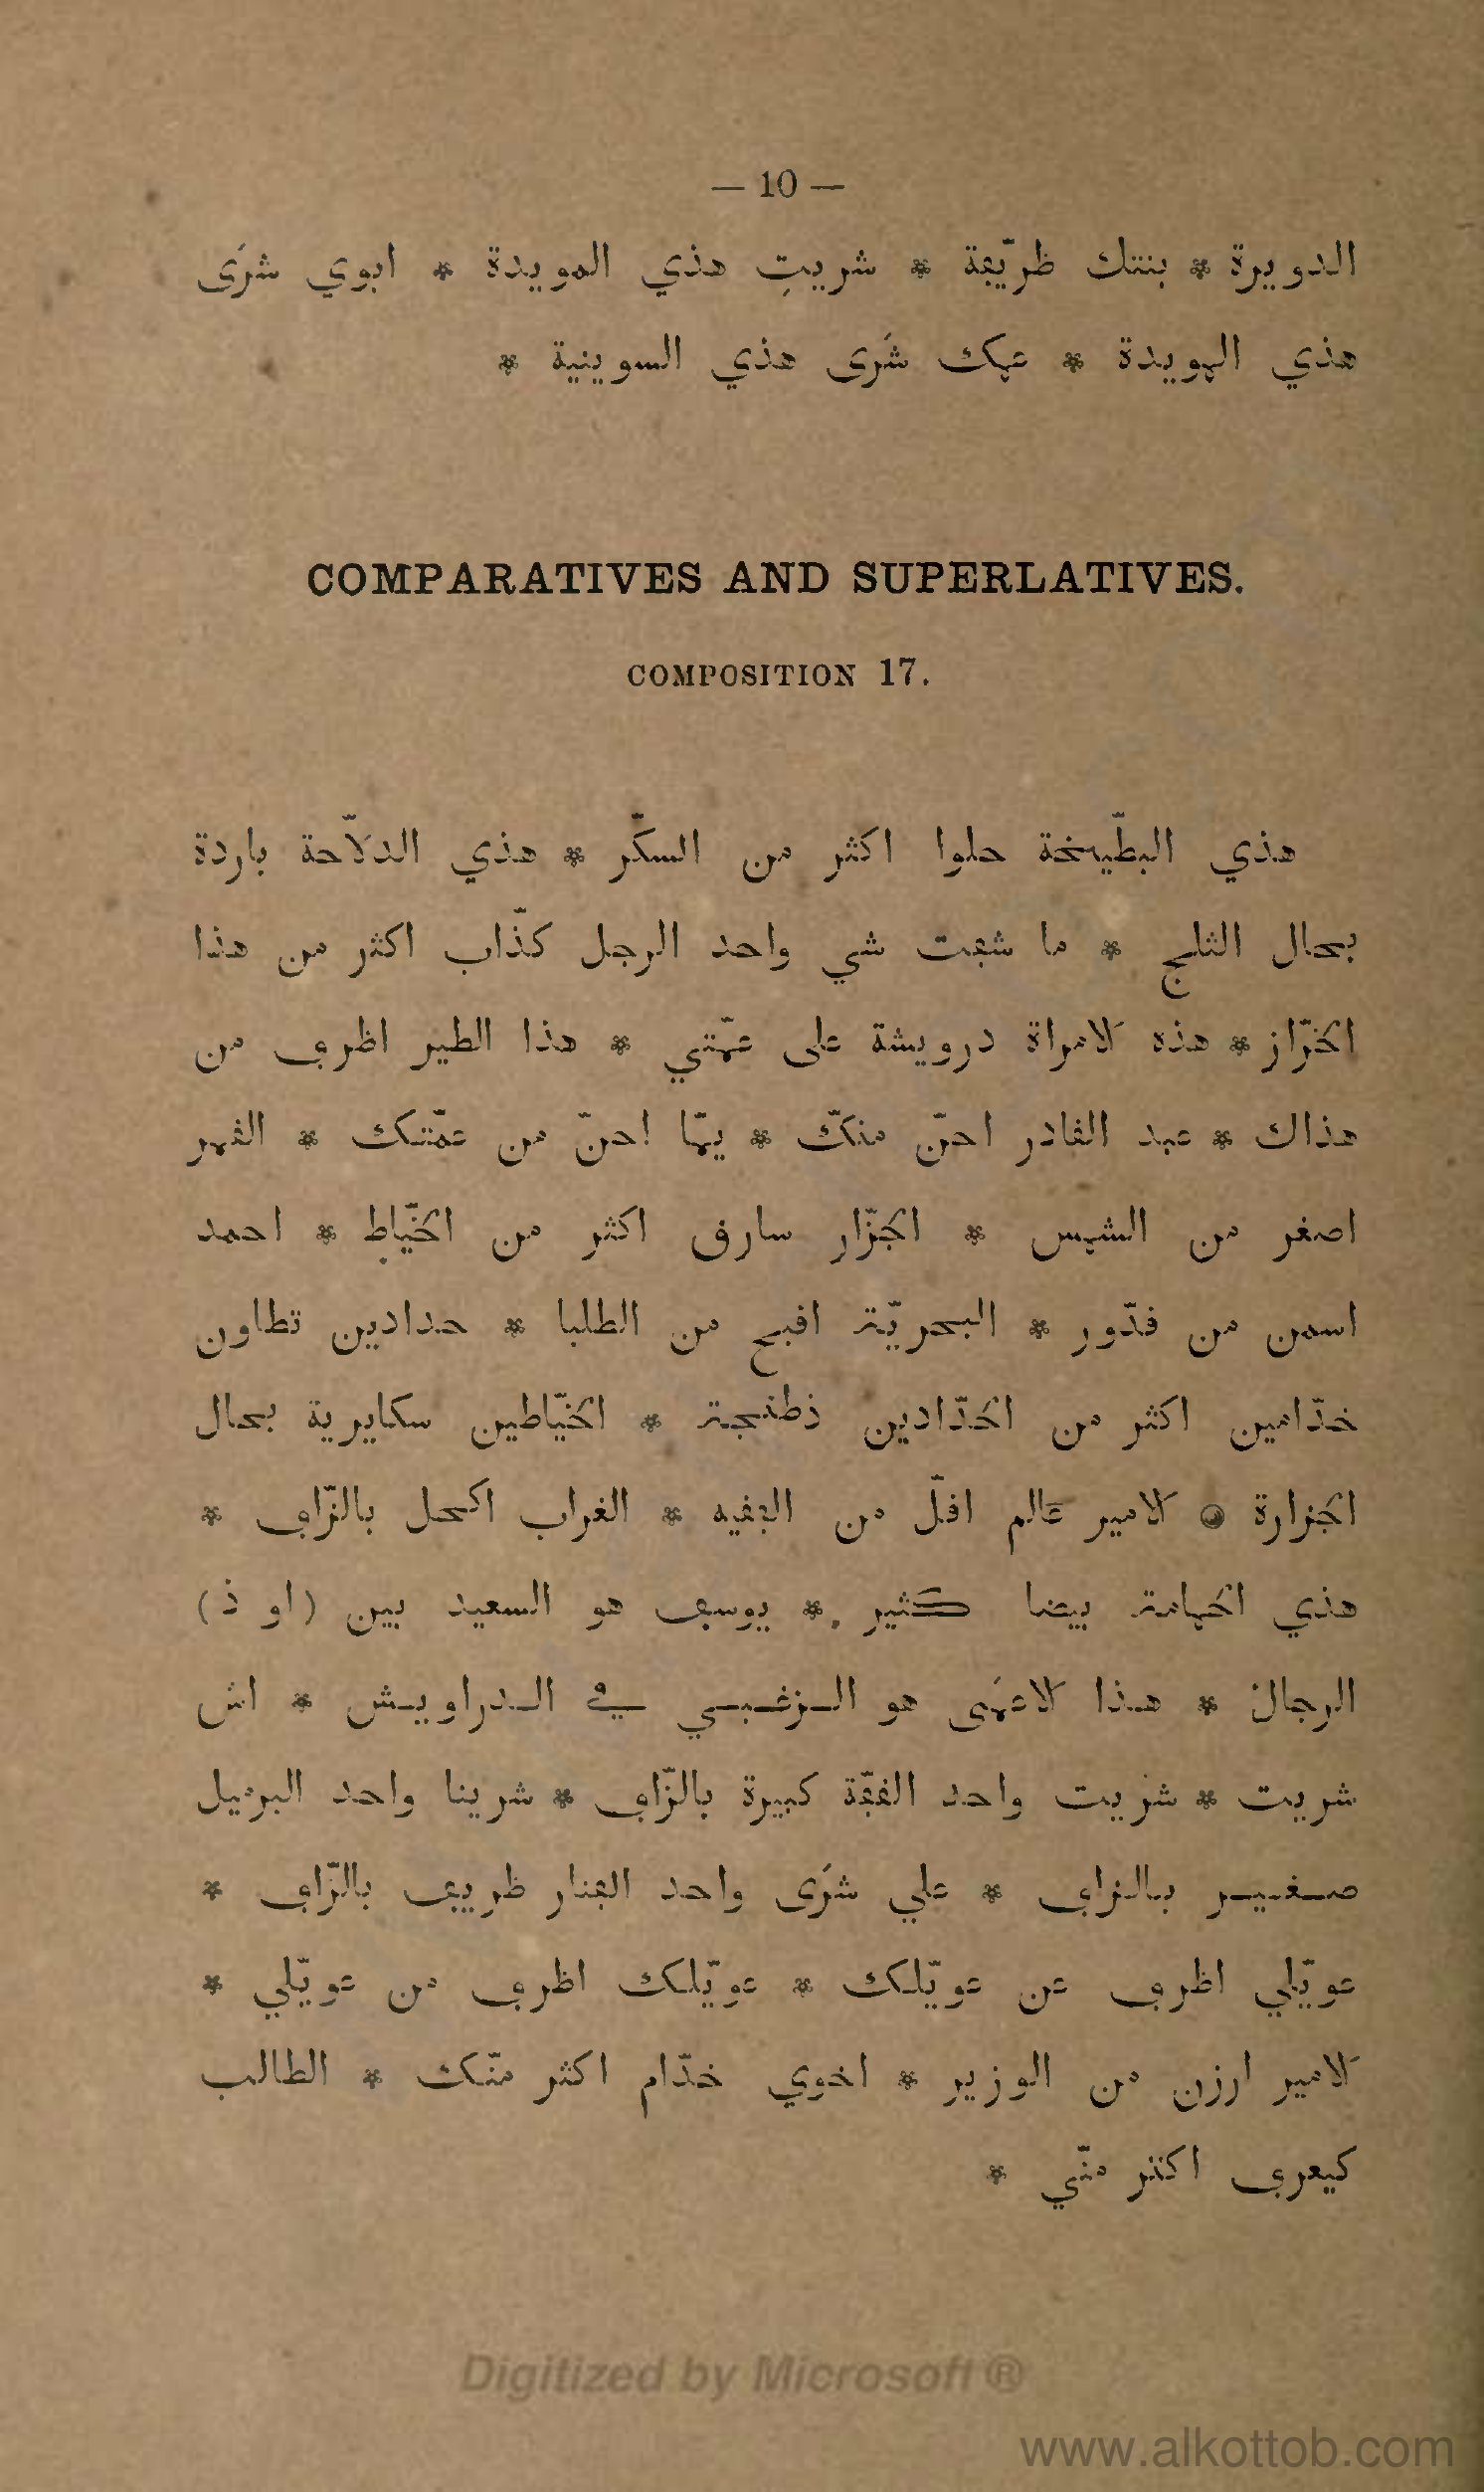 — 10 —
الدويرة * بنتك ظريّفة * شريتِ هذي المويدة * ابوي شرَى
هذي المويدة * عمك شَرى هذي السوينية *
COMPARATIVES AND SUPERLATIVES.
COMPOSITION 17.
هذي البطّيخة حلوا اكثر من السكّر * هذي الدلّاحة باردة
بحال الثلج * ما شڢت شي واحد الرجل كذّاب اكثر من هذا
الخرّاز * هذه الامراة درويشة على عمّتي * هذا الطير اظرڢ من
هذاك * عبد الفادر احنّ منكّ * يمّا احنّ من عمّتك * الفمر
اصغر من الشمس * الجزّار سارق اكثر من الخيّاط * احمد
اسمن من فدّور * البحريّة افبح من الطلبا * حدادين تطاون
خدّامين اكثر من الحدّادين ذطنجة * الخيّاطين سكايرية بحال
الجزارة * الامير عالم افلّ من الڢفيه * الغراب اكحل بالزّاڢ *
هذي الحمامة بيضا كثير * يوسڢ هو السعيد بين (او ذ)
الرجال * هذا الاعمَى هو الزغبي في الدراويش * اش
شريت * شريت واحد الففّة كبيرة بالزّاڢ * شرينا واحد البرميل
صغير بالزاڢ * علي شرَى واحد الڢنار ظريڢ بالزّاڢ *
عويّلي اظرڢ عن عويّلك * عويّلك اظرڢ من عويّلي *
الامير ارزن من الوزير * اخوي خدّام اكثر منّك * الطالب
كيعرڢ اكثر منّي *
Digitized by Microsoft ®
www.alkottob.com